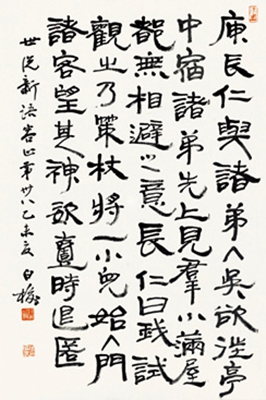 庾长仁與諸弟入吳欲往亭
中宿諸弟先上見羣小滿屋
都無相避之意長仁曰我試
觀之乃策杖將一小兒始入門
諸客望其神欲壹時退匿
世说新语容止第卅八乙未夏白梅